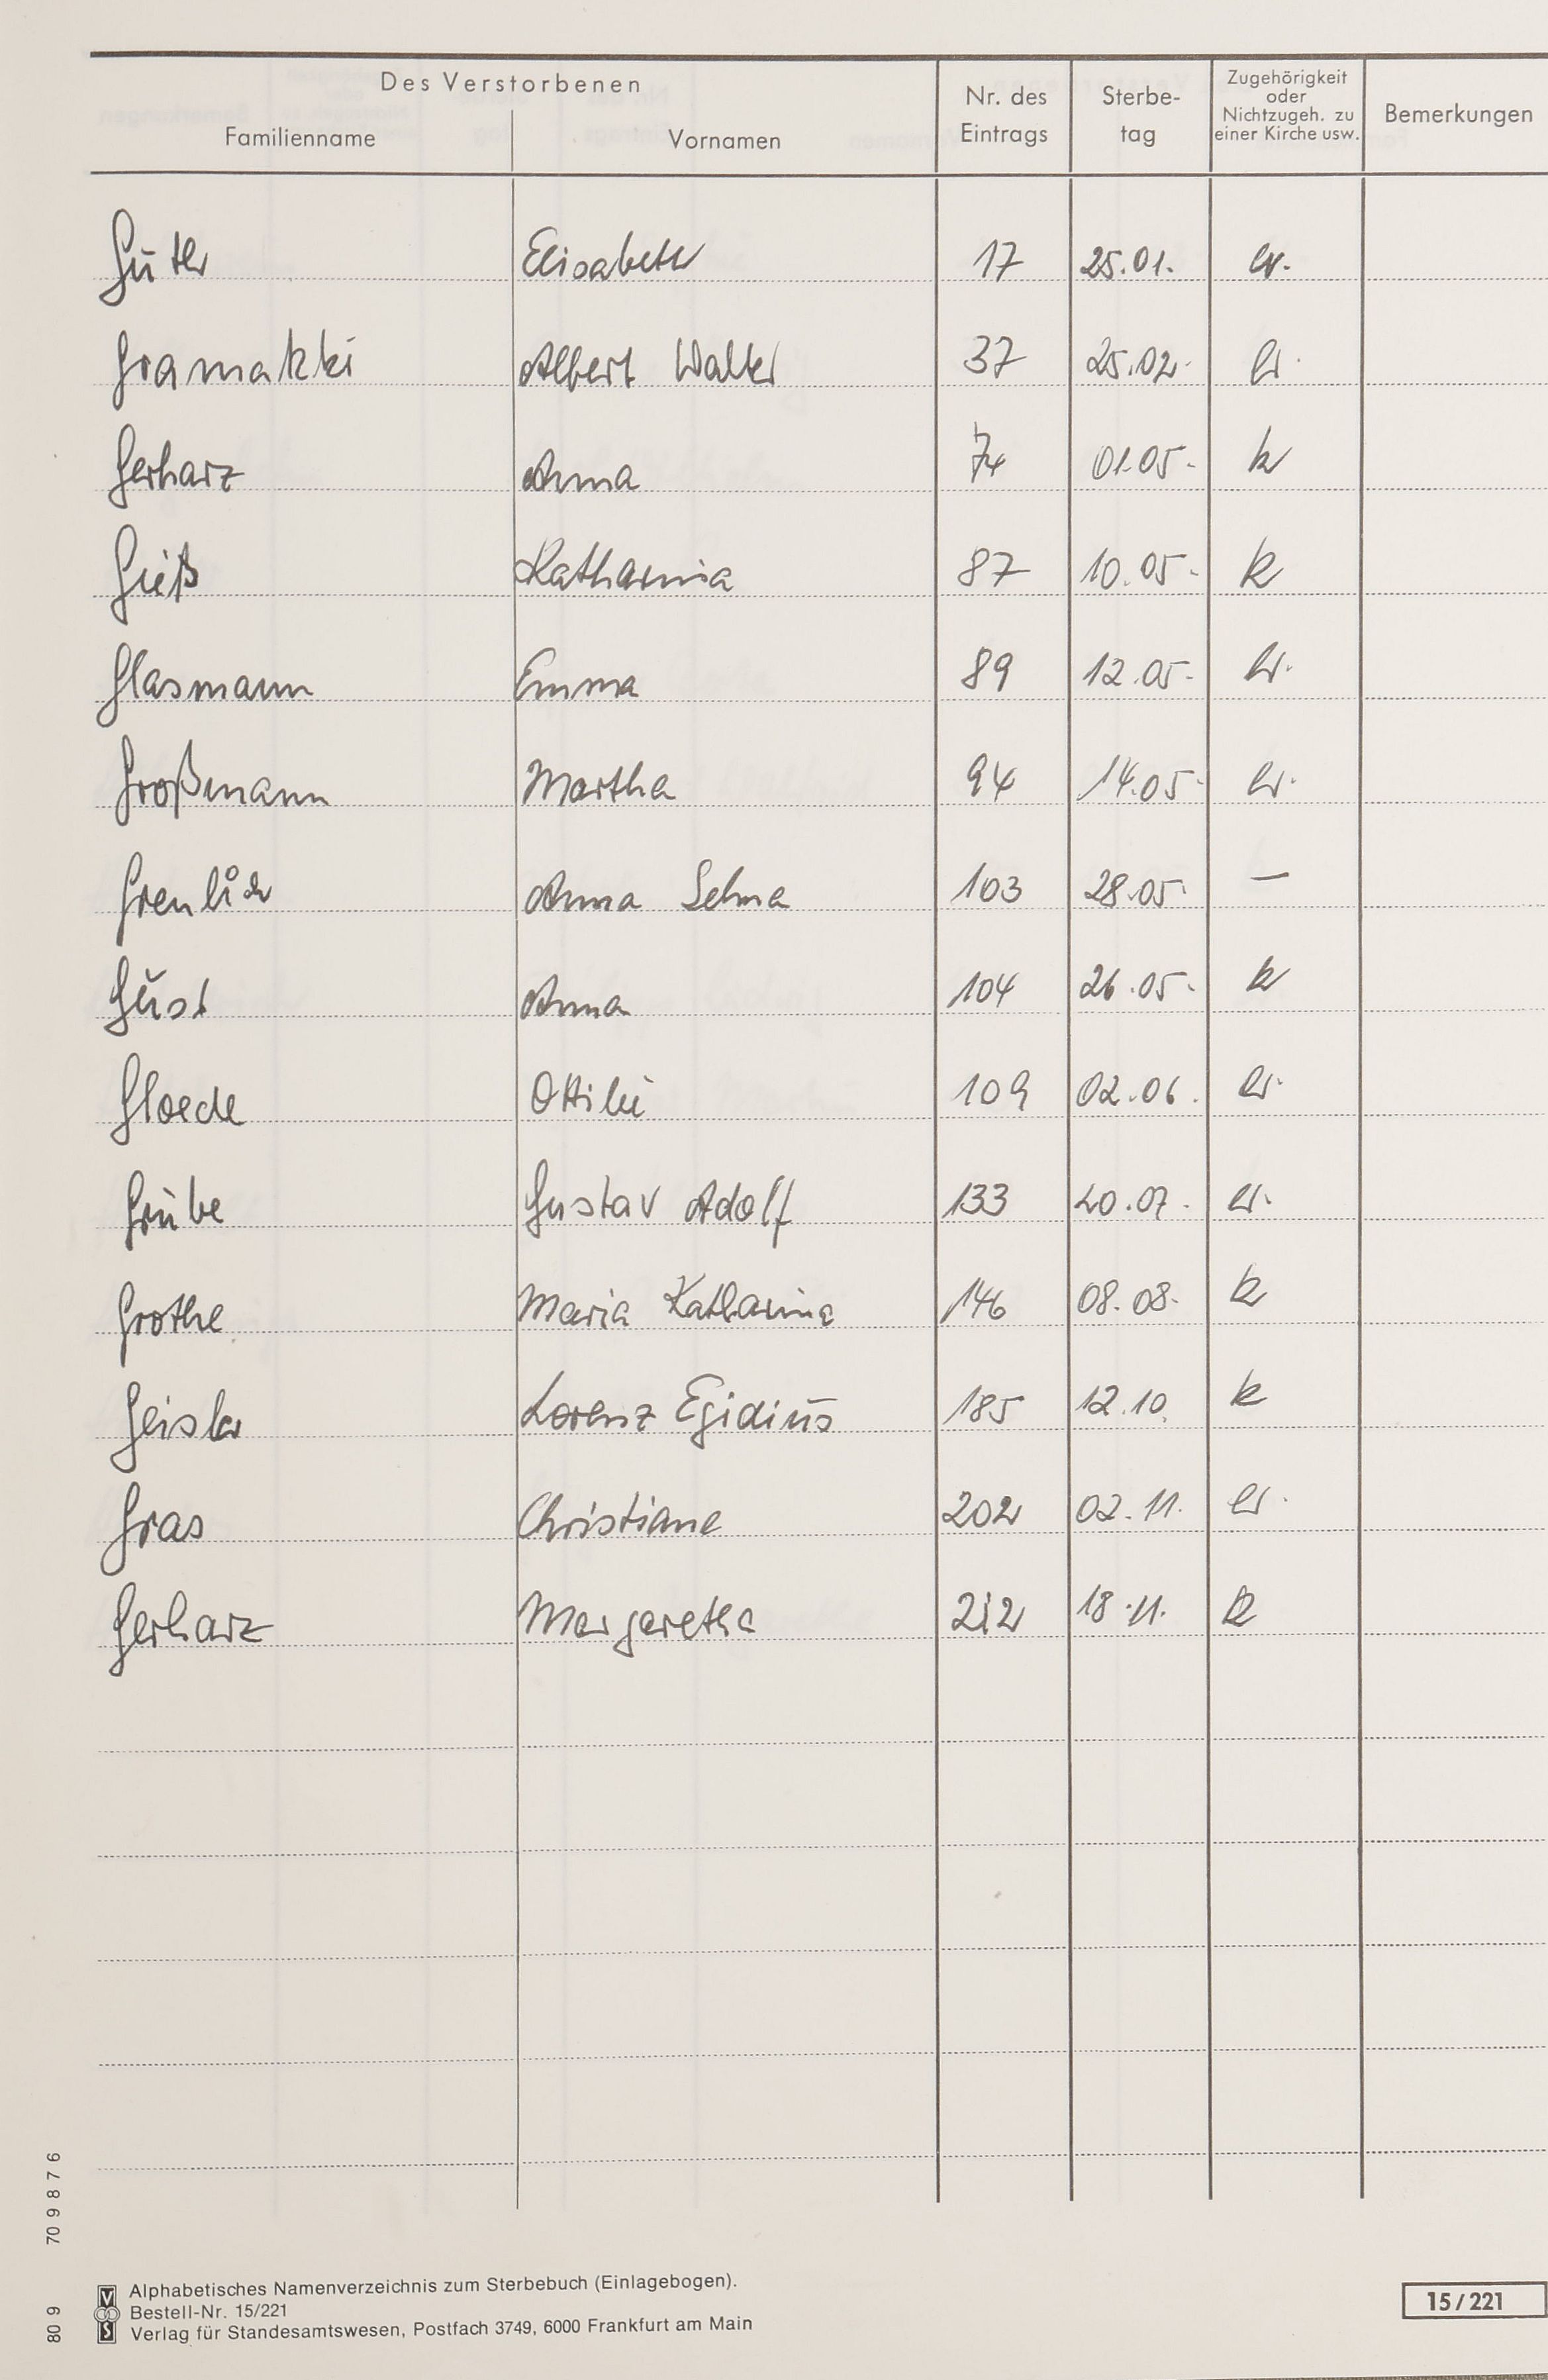 Des Verstorbenen
Familienname Vornamen Nr. des Eintrags Sterbe-tag Zugehörigkeit oder Nichtzugeh. zu einer Kirche usw. Bemerkungen
Elisabeth 17 25.01. ev.
Albert Walter 37 25.02. ev.
Gerharz Anna 74 01.05. k
Gieß Katharina 87 10.05. k
Glasmann Emma 89 12.05. ev.
Großmann Martha 94 14.05. ev.
Anna Selma 103 28.05. —
Güst Anna 104 26.05. k
Gloede Ottilie 109 02.06. ev.
Grübe Gustav Adolf 133 20.07. ev.
Grothe Maria Katharina 146 08.08. k
Geisler Lorenz Egidius 185 12.10. k
Gras Christiane 202 02.11. ev.
Gerharz Margaretha 212 18.11. k
Alphabetisches Namenverzeichnis zum Sterbebuch (Einlagebogen).
Bestell-Nr. 15/221
Verlag für Standesamtswesen, Postfach 3749, 6000 Frankfurt am Main
15/221
80 9 70 9 8 7 6